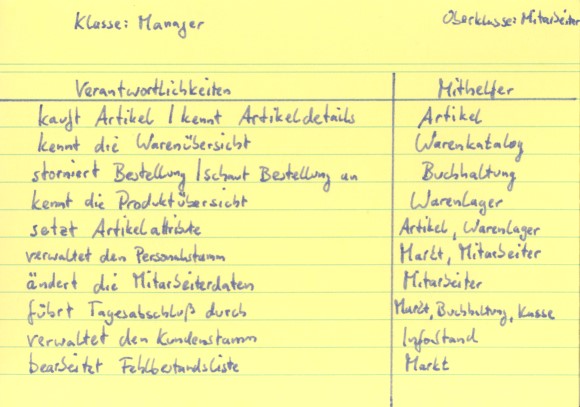 Klasse: Manager Oberklasse: Mitarbeiter
Verantwortlichkeiten Mithelfer
kauft Artikel / kennt Artikeldetails Artikel
kennt die Warenübersicht Warenkatalog
storniert Bestellung / schaut Bestellung an Buchhaltung
kennt die Produktübersicht Warenlager
setzt Artikelattribute Artikel, Warenlager
verwaltet den Personalstamm Markt, Mitarbeiter
ändert die Mitarbeiterdaten Mitarbeiter
führt Tagesabschluß durch Markt, Buchhaltung, Kasse
verwaltet den Kundenstamm Infostand
bearbeitet Fehlbestandsliste Markt